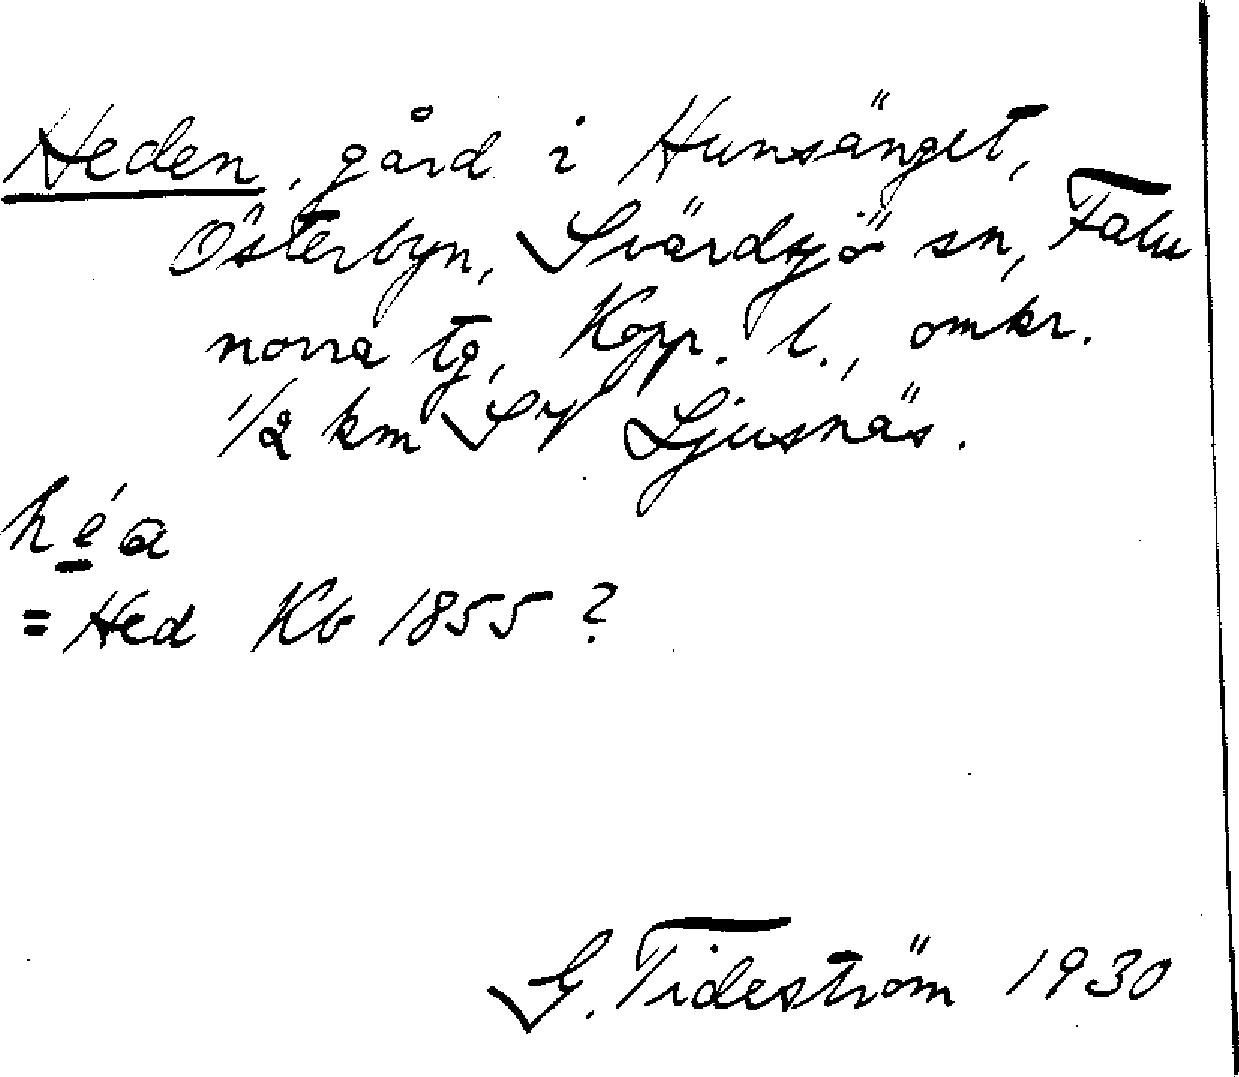 Heden, gård i Hunsänget,
Österbyn, Svärdsjö sn, Falu
norra tg, Kopp. l., omkr.
1/2 km SV Ljusnäs.
héa
= Hed Kb 1855 ?
G. Tideström 1930